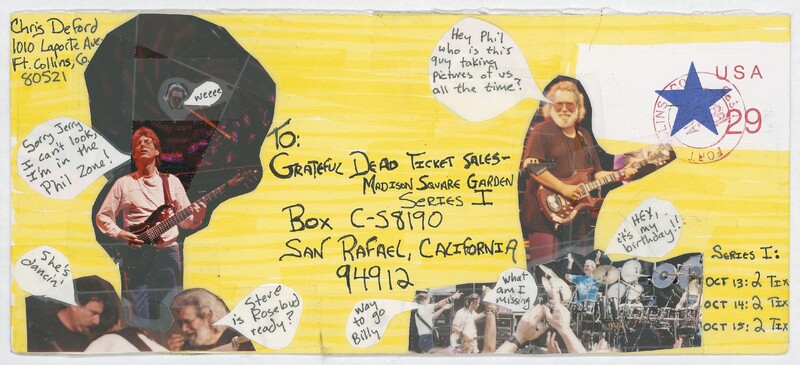 Chris DeFord
1010 Laporte Ave
Ft. Collins, Co.
80521
weeee
Sorry Jerry,
I can't look,
I'm in the
Phil Zone!
She's
dancin'
is Steve
Rosebud
ready?
Hey Phil
who is this
guy taking
pictures of us
all the time?
USA
29
LINS
FORT
To:
Grateful Dead Ticket Sales-
Madison Square Garden
Series I
Box C-S8190
San Rafael, California
94912
way
to go
Billy
what
am I
missing
HEY,
it's my
birthday!!
Series I:
Oct 13: 2 Tix
Oct 14: 2 Tix
Oct 15: 2 Tix